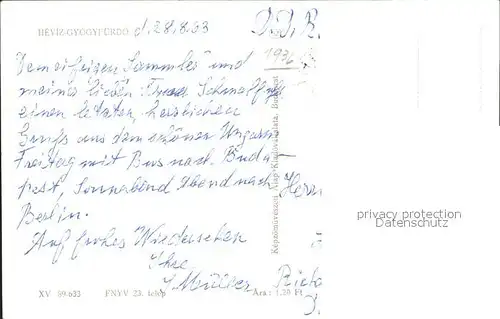 HÉVIZ-GYÓGYFÜRDŐ d. 28.8.63
D.D.R.
1936
Dem eifrigen Sammler und
meiner lieben Frau
einen letzten, herzlichen
Gruß aus dem schönen Ungarn
Freitag mit Bus nach Buda-
pest, Sonnabend Abend nach
Berlin.
Auf frohes Wiedersehen
Ihre
Müller
Herr
Képzőművészeti Alap Kiadóvállalata, Budapest
privacy protection
Datenschutz
XV 89-633 FNYV 23. telep Ára: 1,20 Ft